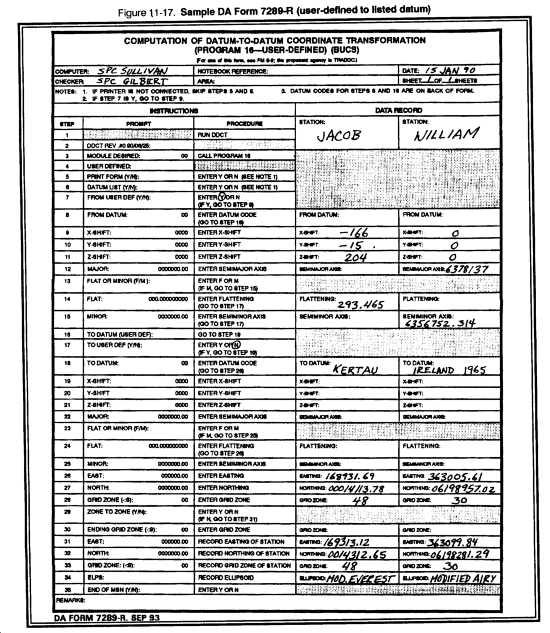 Figure 11-17. Sample DA Form 7289-R (user-defined to listed datum)
COMPUTATION OF DATUM-TO-DATUM COORDINATE TRANSFORMATION
(PROGRAM 16—USER-DEFINED) (BUCS)
(For use of this form, see FM 6-2; the proponent agency is TRADOC)
COMPUTER: SPC SULLIVAN NOTEBOOK REFERENCE: DATE: 15 JAN 90
CHECKER: SPC GILBERT AREA: SHEET 1 OF 1 SHEETS
NOTES: 1. IF PRINTER IS NOT CONNECTED, SKIP STEPS 5 AND 6. 3. DATUM CODES FOR STEPS 8 AND 18 ARE ON BACK OF FORM.
2. IF STEP 7 IS Y, GO TO STEP 9.
INSTRUCTIONS DATA RECORD
STEP PROMPT PROCEDURE STATION: JACOB STATION: WILLIAM
1 RUN DDCT
2 DDCT REV .#0 90/06/25:
3 MODULE DESIRED: 00 CALL PROGRAM 16
4 USER DEFINED:
5 PRINT FORM (Y/N): ENTER Y OR N (SEE NOTE 1)
6 DATUM LIST (Y/N): ENTER Y OR N (SEE NOTE 1)
7 FROM USER DEF (Y/N): ENTER Y OR N
(IF Y, GO TO STEP 9)
8 FROM DATUM: 00 ENTER DATUM CODE FROM DATUM: FROM DATUM:
(GO TO STEP 16)
9 X-SHIFT: 0000 ENTER X-SHIFT X-SHIFT: -166 X-SHIFT: 0
10 Y-SHIFT: 0000 ENTER Y-SHIFT Y-SHIFT: -15. Y-SHIFT: 0
11 Z-SHIFT: 0000 ENTER Z-SHIFT Z-SHIFT: 204 Z-SHIFT: 0
12 MAJOR: 0000000.00 ENTER SEMIMAJOR AXIS SEMIMAJOR AXIS: SEMIMAJOR AXIS: 6378137
13 FLAT OR MINOR (F/M): ENTER F OR M
(IF M, GO TO STEP 15)
14 FLAT: 000.000000000 ENTER FLATTENING FLATTENING: 293.465 FLATTENING:
(GO TO STEP 17)
15 MINOR: 0000000.00 ENTER SEMIMINOR AXIS SEMIMINOR AXIS: SEMIMINOR AXIS: 6356752.314
(GO TO STEP 17)
16 TO DATUM (USER DEF): GO TO STEP 19
17 TO USER DEF (Y/N): ENTER Y OR N
(IF Y, GO TO STEP 19)
18 TO DATUM: 00 ENTER DATUM CODE TO DATUM: KERTAU TO DATUM: IRELAND 1965
(GO TO STEP 26)
19 X-SHIFT: 0000 ENTER X-SHIFT X-SHIFT: X-SHIFT:
20 Y-SHIFT: 0000 ENTER Y-SHIFT Y-SHIFT: Y-SHIFT:
21 Z-SHIFT: 0000 ENTER Z-SHIFT Z-SHIFT: Z-SHIFT:
22 MAJOR: 0000000.00 ENTER SEMIMAJOR AXIS SEMIMAJOR AXIS: SEMIMAJOR AXIS:
23 FLAT OR MINOR (F/M): ENTER F OR M
(IF M, GO TO STEP 25)
24 FLAT: 000.000000000 ENTER FLATTENING FLATTENING: FLATTENING:
(GO TO STEP 26)
25 MINOR: 0000000.00 ENTER SEMIMINOR AXIS SEMIMINOR AXIS: SEMIMINOR AXIS:
26 EAST: 000000.00 ENTER EASTING EASTING: 168931.69 EASTING: 363005.61
27 NORTH: 0000000.00 ENTER NORTHING NORTHING: 00014113.78 NORTHING: 06198957.02
28 GRID ZONE (-:S): 00 ENTER GRID ZONE GRID ZONE: 48 GRID ZONE: 30
29 ZONE TO ZONE (Y/N): ENTER Y OR N
(IF N, GO TO STEP 31)
30 ENDING GRID ZONE (-:S): 00 ENTER GRID ZONE GRID ZONE: GRID ZONE:
31 EAST: 000000.00 RECORD EASTING OF STATION EASTING: 169313.12 EASTING: 363099.84
32 NORTH: 0000000.00 RECORD NORTHING OF STATION NORTHING: 0014312.65 NORTHING: 06198281.29
33 GRID ZONE: (-:S): 00 RECORD GRID ZONE OF STATION GRID ZONE: 48 GRID ZONE: 30
34 ELPS: RECORD ELLIPSOID ELLIPSOID: MOD. EVEREST ELLIPSOID: MODIFIED AIRY
35 END OF MSN (Y/N): ENTER Y OR N
REMARKS:
DA FORM 7289-R, SEP 93